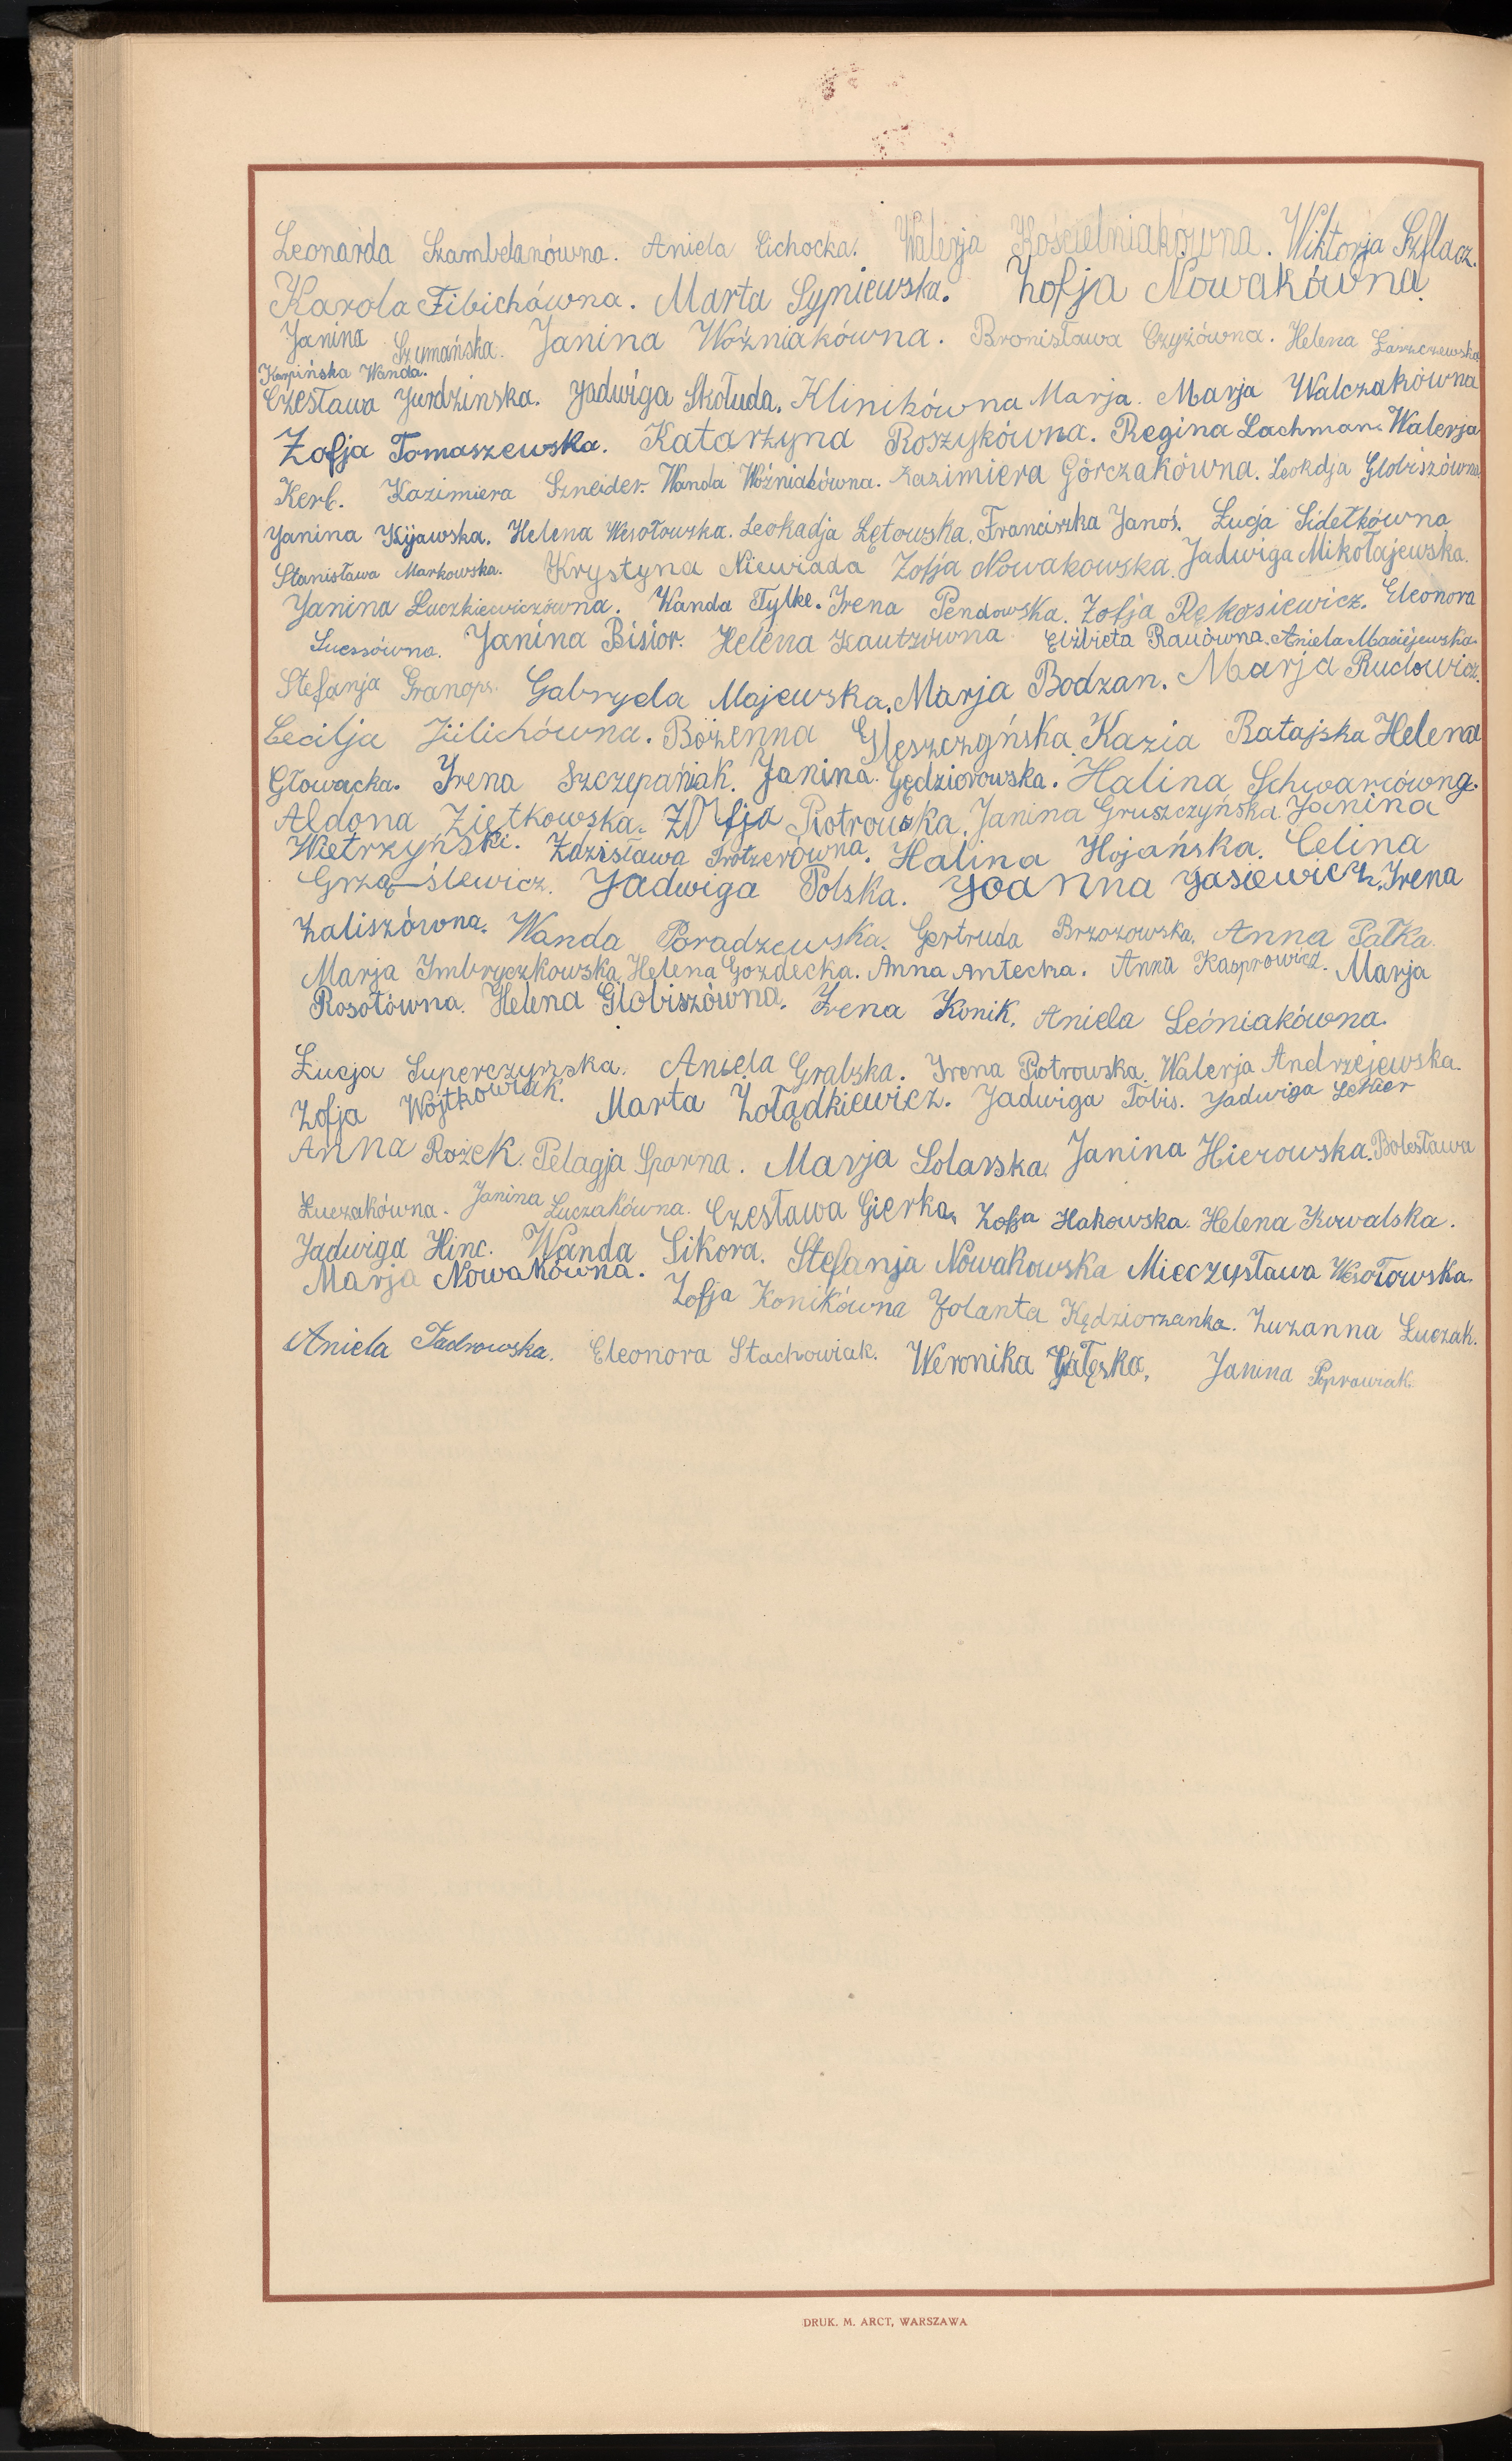 Leonarda Szambelanówna. Aniela Cichocka. Walerja Kościelniakówna. Wiktorja Szflacz.
Karola Fibichówna. Marta Sypniewska. Zofja Nowakówna
Janina Szymańska. Janina Woźniakówna. Bronisława Czyżówna. Helena Łaszczewska
Karpińska Wanda.
Czesława Jurdzinska. Jadwiga Skołuda. Klinikówna Marja. Marja Walczakówna
Zofja Tomaszewska. Katarzyna Roszykówna. Regina Lachman. Walerja
Kerb. Kazimiera Szneider. Wanda Woźniakówna. Kazimiera Górczakówna. Leokdja Globiszówna
Janina Kijawska. Helena Wesołowska. Leokadja Łętowska. Franciszka Janoś. Łucja Sidełkówna
Stanisława Markowska. Krystyna Niewiada Zofja Nowakowska. Jadwiga Mikołajewska.
Janina Łuczkiewiczówna. Wanda Tylke. Irena Pendowska. Zofja Rękosiewicz. Eleonora
Suessówna. Janina Bisior. Helena Kautzówna Elżbieta Rauówna. Aniela Maciejewska.
Stefanja Granops. Gabryela Majewska. Marja Bodzan. Marja Rudowicz.
Cecilja Jülichówna. Bożenna Gleszczyńska. Kazia Ratajska Helena
Głowacka. Irena Szczepańiak. Janina Gędziorowska. Halina Schwarcówna.
Aldona Ziętkowska. Zofja Piotrowska. Janina Gruszczyńska. Janina
Wietrzyński. Zdzisława Trotzerówna. Halina Hojańska. Celina
Grzą-ślewicz. Jadwiga Polska. Joanna Jasiewicz. Irena
Zaliszówna. Wanda Poradzewska. Gertruda Brzozowska. Anna Pałka.
Marja Imbryczkowska. Helena Gozdecka. Anna Antecka. Anna Kasprowicz. Marja
Rosołówna. Helena Globiszówna. Irena Konik. Aniela Leśniakówna.
Łucja Superczyńska. Aniela Gralska. Irena Piotrowska. Walerja Andrzejewska.
Zofja Wojtkowiak. Marta Żołądkiewicz. Jadwiga Tobis. Jadwiga Lehner
Anna Rożek. Pelagja Sporna. Marja Solarska. Janina Hierowska. Bolesława
Łuczakówna. Janina Łuczakówna. Czesława Gierka. Zofja Hakowska. Helena Kowalska.
Jadwiga Hinc. Wanda Sikora. Stefanja Nowakowska Mieczysława Wesołowska.
Marja Nowakówna. Zofja Konikówna Jolanta Kędziorzanka. Zuzanna Łuczak.
Aniela Tadrowska. Eleonora Stachowiak. Weronika Gałęska. Janina Poprawzak.
DRUK. M. ARCT, WARSZAWA